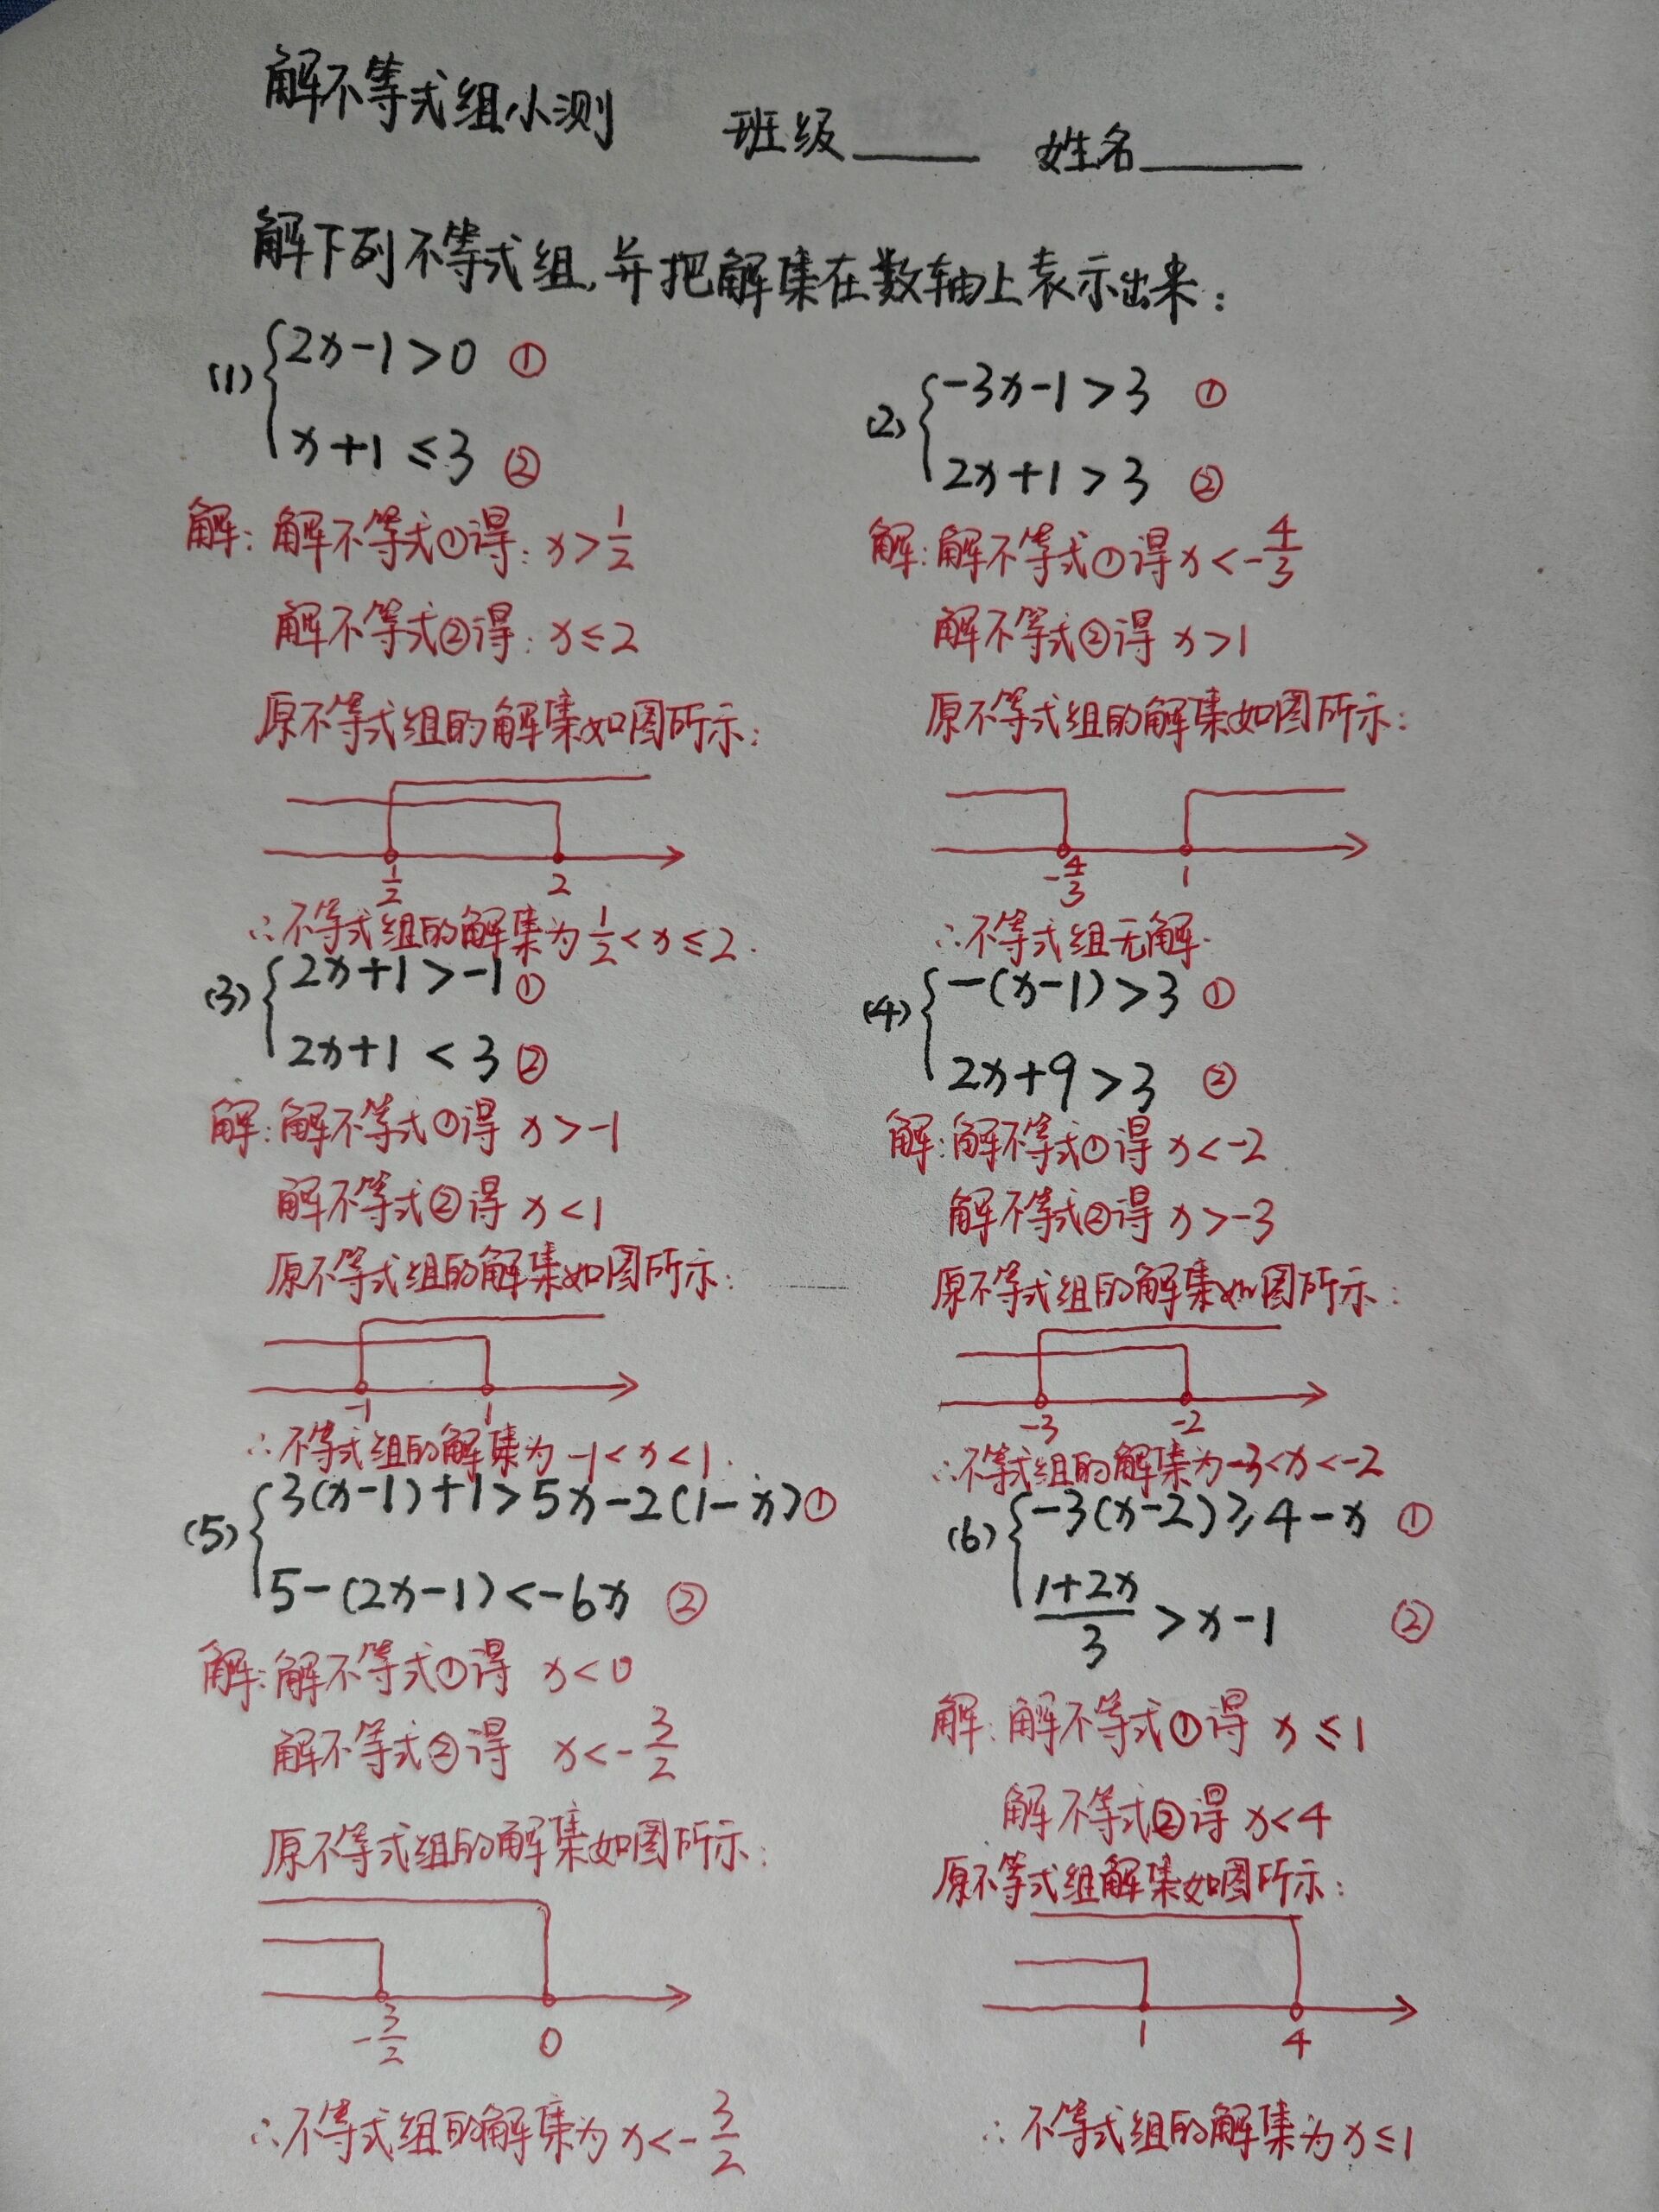 解不等式组小测 班级____ 姓名____
解下列不等式组,并把解集在数轴上表示出来:
(1) {2x-1>0 ①
x+1≤3 ②
解: 解不等式①得: x>1/2
解不等式②得: x≤2
原不等式组的解集如图所示:
1/2 2
∴不等式组的解集为1/2<x≤2.
(2) {-3x-1>3 ①
2x+1>3 ②
解: 解不等式①得x<-4/3
解不等式②得 x>1
原不等式组的解集如图所示:
-4/3 1
∴不等式组无解.
(3) {2x+1>-1 ①
2x+1<3 ②
解: 解不等式①得 x>-1
解不等式②得 x<1
原不等式组的解集如图所示:
-1 1
∴不等式组的解集为-1<x<1.
(4) {-(x-1)>3 ①
2x+9>3 ②
解: 解不等式①得 x<-2
解不等式②得 x>-3
原不等式组的解集如图所示:
-3 -2
∴不等式组的解集为-3<x<-2
(5) {3(x-1)+1>5x-2(1-x) ①
5-(2x-1)<-6x ②
解: 解不等式①得 x<0
解不等式②得 x<-3/2
原不等式组的解集如图所示:
-3/2 0
∴不等式组的解集为x<-3/2
(6) {-3(x-2)≥4-x ①
(1+2x)/3>x-1 ②
解: 解不等式①得 x≤1
解不等式②得 x<4
原不等式组解集如图所示:
1 4
∴不等式组的解集为x≤1